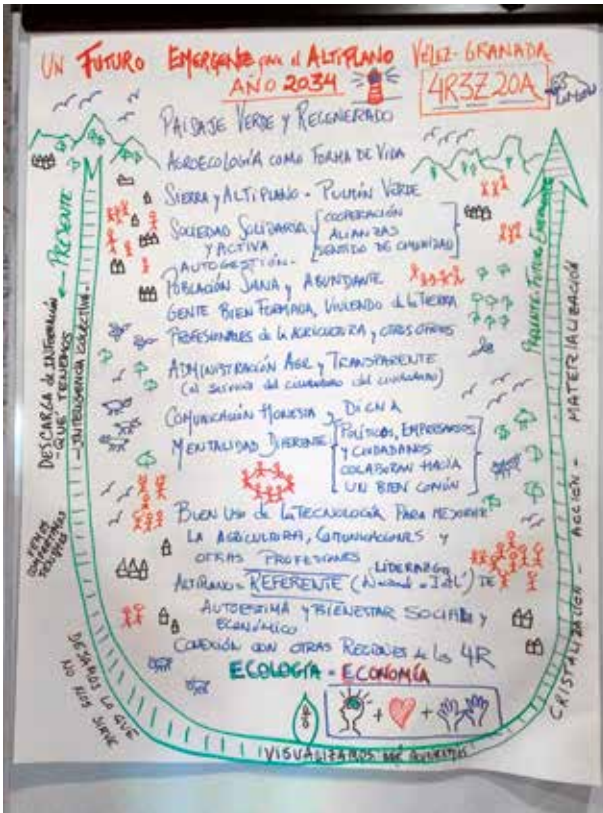 UN FUTURO EMERGENTE para el ALTIPLANO VÉLEZ-GRANADA
AÑO 2034
4R3Z20A
PAISAJE VERDE Y REGENERADO
AGROECOLOGÍA COMO FORMA DE VIDA
SIERRA Y ALTIPLANO - PULMÓN VERDE
SOCIEDAD SOLIDARIA Y ACTIVA
COOPERACIÓN
ALIANZAS
SENTIDO DE COMUNIDAD
AUTOGESTIÓN
POBLACIÓN SANA Y ABUNDANTE
GENTE BIEN FORMADA, VIVIENDO de la TIERRA
PROFESIONALES de la AGRICULTURA, y OTROS OFICIOS
ADMINISTRACIÓN AGIL Y TRANSPARENTE
(al servicio del ciudadano)
COMUNICACIÓN HONESTA y DIGNA
MENTALIDAD DIFERENTE
POLÍTICOS, EMPRESARIOS
Y CIUDADANOS
COLABORAN HACIA
UN BIEN COMÚN
BUEN USO de la TECNOLOGÍA PARA MEJORAR
LA AGRICULTURA, COMUNICACIONES Y
OTRAS PROFESIONES
LIDERAZGO
ALTIPLANO = REFERENTE (Nacional e Int'l) DE
AUTOESTIMA Y BIENESTAR SOCIAL y
ECONÓMICO
CONEXIÓN CON OTRAS REGIONES de las 4R
ECOLOGÍA = ECONOMÍA
PRESENTE
DESCARGA de INFORMACIÓN
"QUÉ" TENEMOS
INTELIGENCIA COLECTIVA
DEJAMOS LO QUE
NO NOS SIRVE
VISUALIZAMOS QUÉ QUEREMOS
CRISTALIZACIÓN - ACCIÓN - MATERIALIZACIÓN
PRESENTE FUTURO EMERGENTE